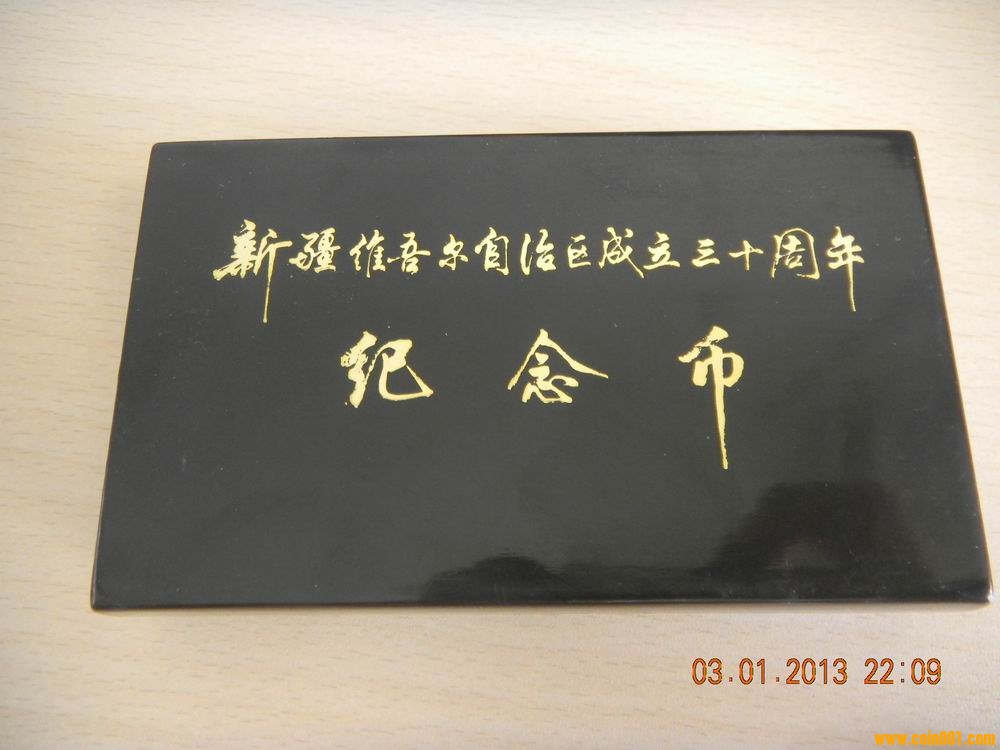 新疆维吾尔自治区成立三十周年
纪念币
03.01.2013 22:09
www.coin001.com